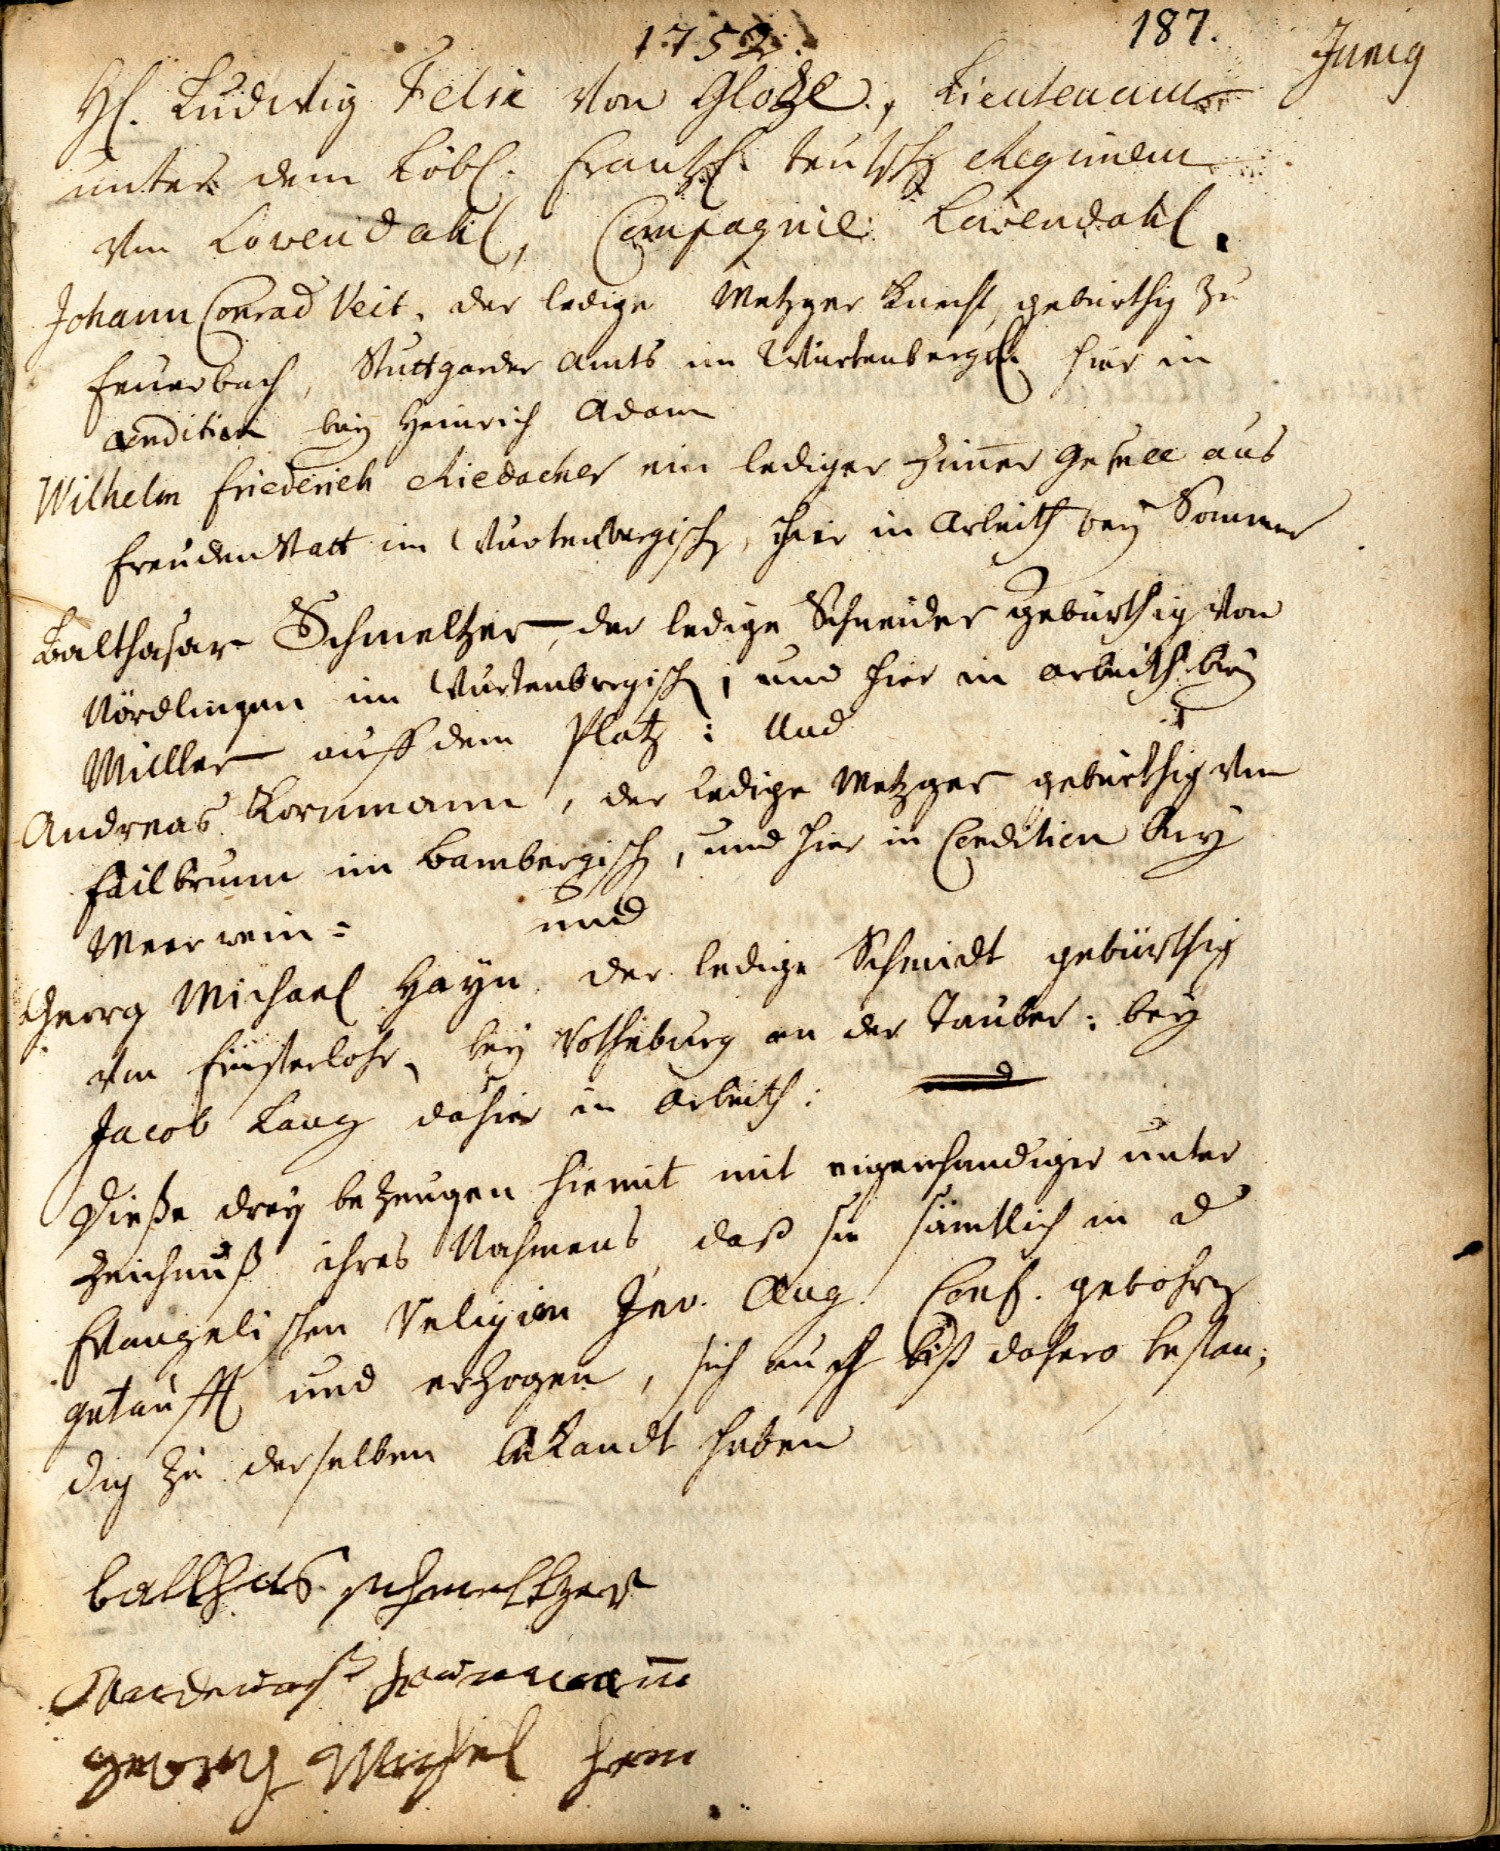 1752.
187.
Junig
H. Ludwig Felix von Glotze, Lieutenant
unter dem Löbl. Frantz. teutsch Regiment
von Lövendahl, Compagnie Lövendahl.
Johann Conrad Veit, der ledige Metzger Knecht, gebürthig zu
Feuerbach, Stuttgarder Amts im Würtenberg. hier in
Condition bey Heinrich Adam
Wilhelm Friederich Riedacher ein lediger Zimer Gesell aus
Freudenstatt im Würtenbergisch, hier in Arbeith bey Sommer
Balthasar Schmeltzer, der ledige Schneider gebürthig von
Nördlingen im Würtenbergisch, und hier in arbeith bey
Müller auff dem Platz: Und
Andreas Kornmann, der ledige Metzger gebürthig von
Failbrunn im Bambergisch, und hier in Condition bey
Meerwein: und
Georg Michael Hayn der ledige Schmidt gebürthig
von Finsterlohr, bey Rothenburg an der Tauber: bey
Jacob Lang dahier in Arbeith: und
Dieße drey bezeugen hiemit mit eigenhändiger unter
zeichnuß ihres Nahmens, daß sie sämtlich in d
Evangelischen Religion Inv. Aug. Conf. gebohren
getaufft und erzogen, sich auch biß dahero bestän-
dig zu derselben bekandt haben
balthas schmeltzer
Andereas Kornmann
georg Michel Hein